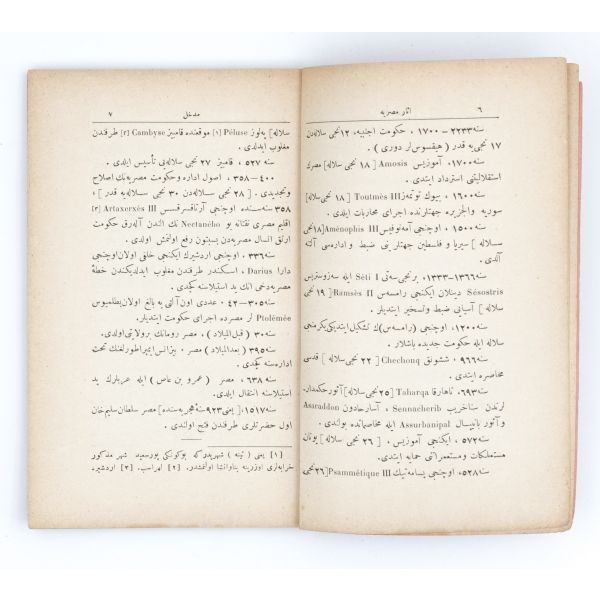 ٦ آثار مصریه
سنه ٢٢٣٣ - ١٧٠٠ ، حکومت اجنبیه، ١٢ نجی سلاله‌دن
١٧ نجی‌یه قدر ( هیقسوس‌لر دوری ) .
سنه ١٧٠٠، آموزیس Amosis [ ١٨ نجی سلاله] مصرك
استقلالیتنی استرداد ایتدی .
سنه ١٦٠٠ ، بیوك توتمز Toutmès III [ ١٨ نجی سلاله]
سوریه والجزیره جهتلرنده اجرای محاربات ایلدی .
سنه ١٥٠٠ ، اوچنجی آمه‌نوفیس Aménophis III [١٨ نجی
سلاله ] سیریا و فلسطین جهتلرینی ضبط و اداره‌سی آلته
آلدی .
سنه ١٣٦٦-١٣٣٣ ، برنجی سه‌تی Séti I ایله سه‌زوستریس
Sésostris دینلان ایکنجی رامسه‌س Ramsès II [ ١٩ نجی
سلاله ] آسیایی ضبط وتسخیر ایتدیلر .
سنه ١٢٠٠ ، اوچنجی (رامسه‌س) ك تشکیل ایتدیکی یکرمنجی
سلاله ایله حکومت جدیده باشلار .
سنه ٩٦٦ ، ششونق Chechouq [ ٢٢ نجی سلاله ] قدسی
محاصره ایتدی .
سنه ٦٩٣ ، تاهارقا Taharqa [٢٥ نجی سلاله] آثور حکمدار-
لرندن سناخریب Sennacherib ، آسارحادون Asaraddon
و آثور بانیبال Assurbanipal ایله مخاصمانده بولندی .
سنه ٥٧٢ ، ایکنجی آموزیس ، [ ٢٦ نجی سلاله] یونان
مستملکات ومستعمراتنی حمایه ایتدی .
سنه ٥٢٨، اوچنجی پسامه‌تیك Psammétique III [٢٦ نجی
مدخل ٧
سلاله] په‌لوز Péluse [١] موقعنده قامبیز Cambyse [٢] طرفندن
مغلوب ایلدی .
سنه ٥٢٧ ، قامبیز ٢٧ نجی سلاله‌یی تأسیس ایلدی .
٤٠٠ - ٣٥٨ ، اصول اداره وحکومت مصریه‌نك اصلاح
وتجدیدی . [ ٢٨ نجی سلاله‌دن ٣٠ نجی سلاله‌یه قدر ] ،
٣٥٨ سنه‌سنده اوچنجی آرتاقسرقسس Artaxerxès III [٣]
اقلیم مصری نقتانه بو Nectanébo نك الندن آله‌رق حکومت
ارتق انسال مصریه‌دن بسبتون رفع اولنمش اولدی .
سنه ٣٣٦، اوچنجی اردشیرك ایکنجی خلفی اولان اوچنجی
دارا Darius ، اسکندر طرفندن مغلوب ایدلدیکندن خطهٔ
مصریه‌دخی انك ید استیلاسنه کچدی .
سنه ٣٠٥-٤٢ ، عددی اون آلتی یه بالغ اولان بطلمیوس
Ptolémée لر مصرده اجرای حکومت ایتدیلر .
سنه ٣٠ (قبل المیلاد) ، مصر رومانك برولایتی اولدی.
سنه ٣٩٥ ( بعدالمیلاد ) مصر ، بیزانس ایمپراطورلغنك تحت
اداره‌سنه کچدی .
سنه ٦٣٨ ، مصر ( عمرو بن عاص ) ایله عربلرك ید
استیلاسنه انتقال ایلدی .
سنه ١٥١٧، [ یعنی ٩٢٣ سنهٔ هجریه‌سنده] مصر سلطان سلیم خان
اول حضرتلری طرفندن فتح اولندی .
[١] یعنی ( تینه ) شهریدرکه بوکونکی پورسعید شهر مذکور
خرابه‌لری اوزرینه بناوانشا اولنمشدر. [٢] لهراسب. [٣] اردشیر.